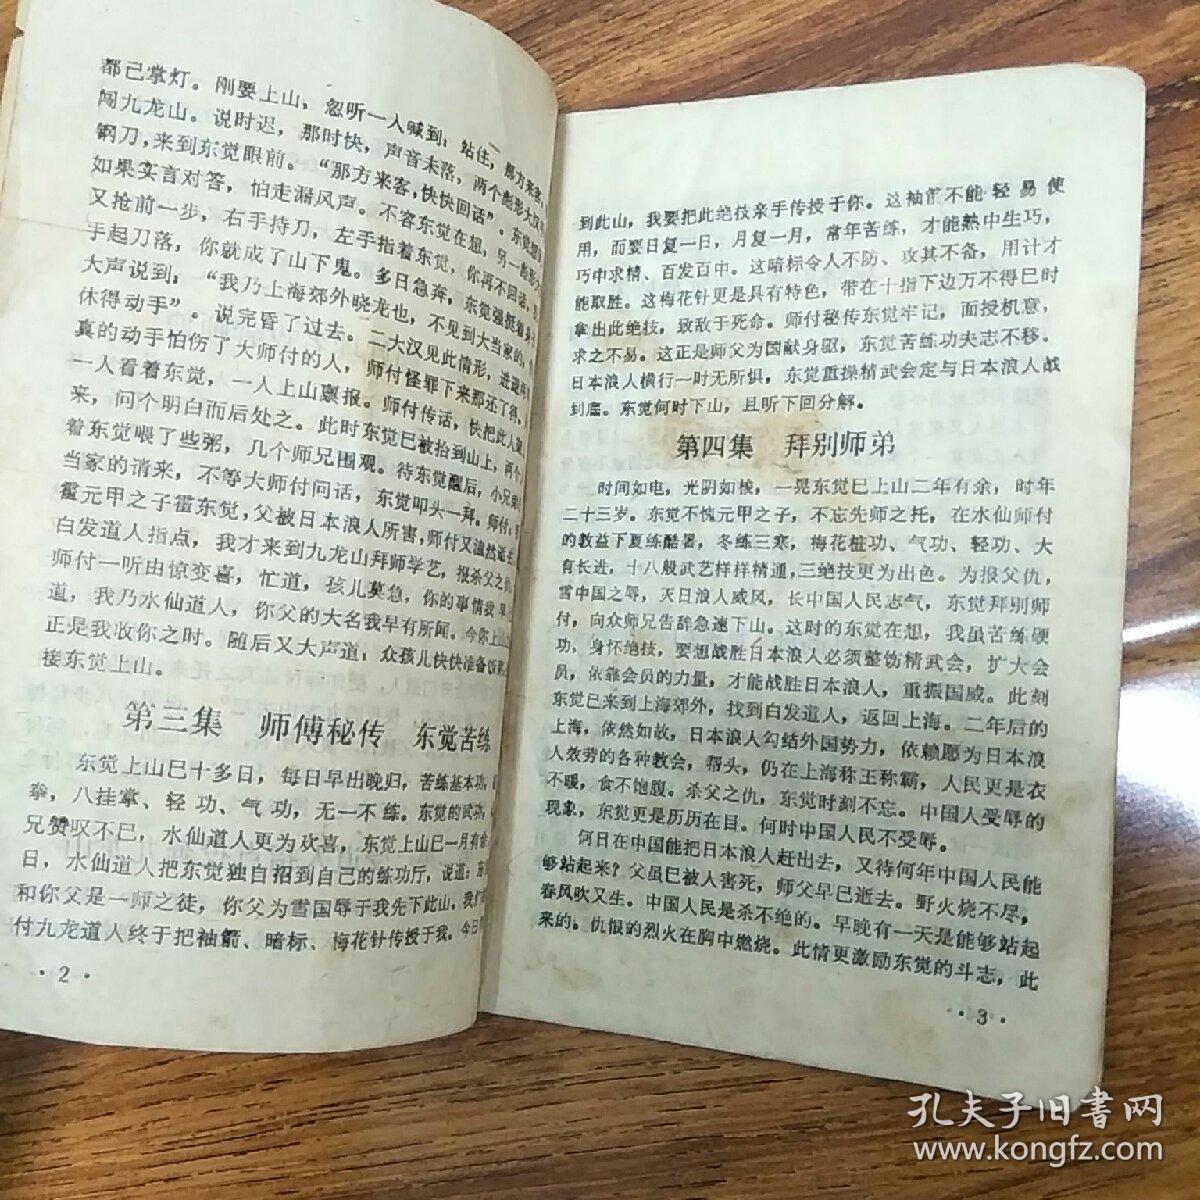 都己掌灯。刚要上山，忽听一人喊到：站住，那方来客，
闯九龙山。说时迟，那时快，声音未落，两个彪形大汉
钢刀，来到东觉眼前。“那方来客，快快回话”。东觉想
如果实言对答，怕走漏风声。不容东觉在想，另一
又抢前一步，右手持刀，左手指着东觉，你再不回话，
手起刀落，你就成了山下鬼。多日急奔，东觉强挺着身
大声说到：“我乃上海郊外晓龙也，不见到大当家的，
休得动手”。说完昏了过去。二大汉见此情形，进退
真的动手怕伤了大师付的人，师付怪罪下来那还了得，
一人看着东觉，一人上山禀报。师付传话，快把此人
来，问个明白而后处之。此时东觉巳被抬到山上，两个
着东觉喂了些粥，几个师兄围观。待东觉醒后，小兄弟
当家的请来，不等大师付问话，东觉叩头一拜。师付：
霍元甲之子霍东觉，父被日本浪人所害，师付又溘然逝去
白发道人指点，我才来到九龙山拜师学艺，报杀父之
师付一听由惊变喜，忙道，孩儿莫急，你的事情我早
道，我乃水仙道人，你父的大名我早有所闻。今你上山
正是我收你之时。随后又大声道：众孩儿快快准备饭
接东觉上山。
第三集　师傅秘传　东觉苦练
东觉上山巳十多日，每日早出晚归，苦练基本功，
拳，八挂掌、轻功、气功，无一不练。东觉的武功，
兄赞叹不已，水仙道人更为欢喜，东觉上山巳一月有余
日，水仙道人把东觉独自招到自己的练功厅，说道：东
和你父是一师之徒，你父为雪国辱于我先下此山，我
付九龙道人终于把袖箭、暗标、梅花针传授于我。今日
·2·
到此山，我要把此绝技亲手传授于你。这袖箭不能轻易使
用，而要日复一日，月复一月，常年苦练，才能熟中生巧，
巧中求精、百发百中。这暗标令人不防、攻其不备，用计才
能取胜。这梅花针更是具有特色，带在十指下边万不得巳时
拿出此绝技，致敌于死命。师付秘传东觉牢记，面授机意，
求之不易。这正是师父为国献身驱，东觉苦练功夫志不移。
日本浪人横行一时无所惧，东觉重操精武会定与日本浪人战
到底。东觉何时下山，且听下回分解。
第四集　拜别师弟
时间如电，光阴如梭，一晃东觉巳上山二年有余，时年
二十三岁。东觉不愧元甲之子，不忘先师之托，在水仙师付
的教益下夏练酷暑，冬练三寒，梅花桩功、气功、轻功、大
有长进，十八般武艺样样精通，三绝技更为出色。为报父仇，
雪中国之辱，灭日浪人威风，长中国人民志气，东觉拜别师
付，向众师兄告辞急速下山。这时的东觉在想，我虽苦练硬
功、身怀绝技，要想战胜日本浪人必须整饬精武会，扩大会
员，依靠会员的力量，才能战胜日本浪人，重振国威。此刻
东觉巳来到上海郊外，找到白发道人，返回上海。二年后的
上海，依然如故，日本浪人勾结外国势力，依赖愿为日本浪
人效劳的各种教会，帮头，仍在上海称王称霸，人民更是衣
不暖，食不饱腹。杀父之仇，东觉时刻不忘。中国人受辱的
现象，东觉更是历历在目。何时中国人民不受辱。
何日在中国能把日本浪人赶出去，又待何年中国人民能
够站起来？父虽巳被人害死，师父早巳逝去。野火烧不尽，
春风吹又生。中国人民是杀不绝的。早晚有一天是能够站起
来的。仇恨的烈火在胸中燃烧。此情更激励东觉的斗志，此
·3·
孔夫子旧书网
www.kongfz.com